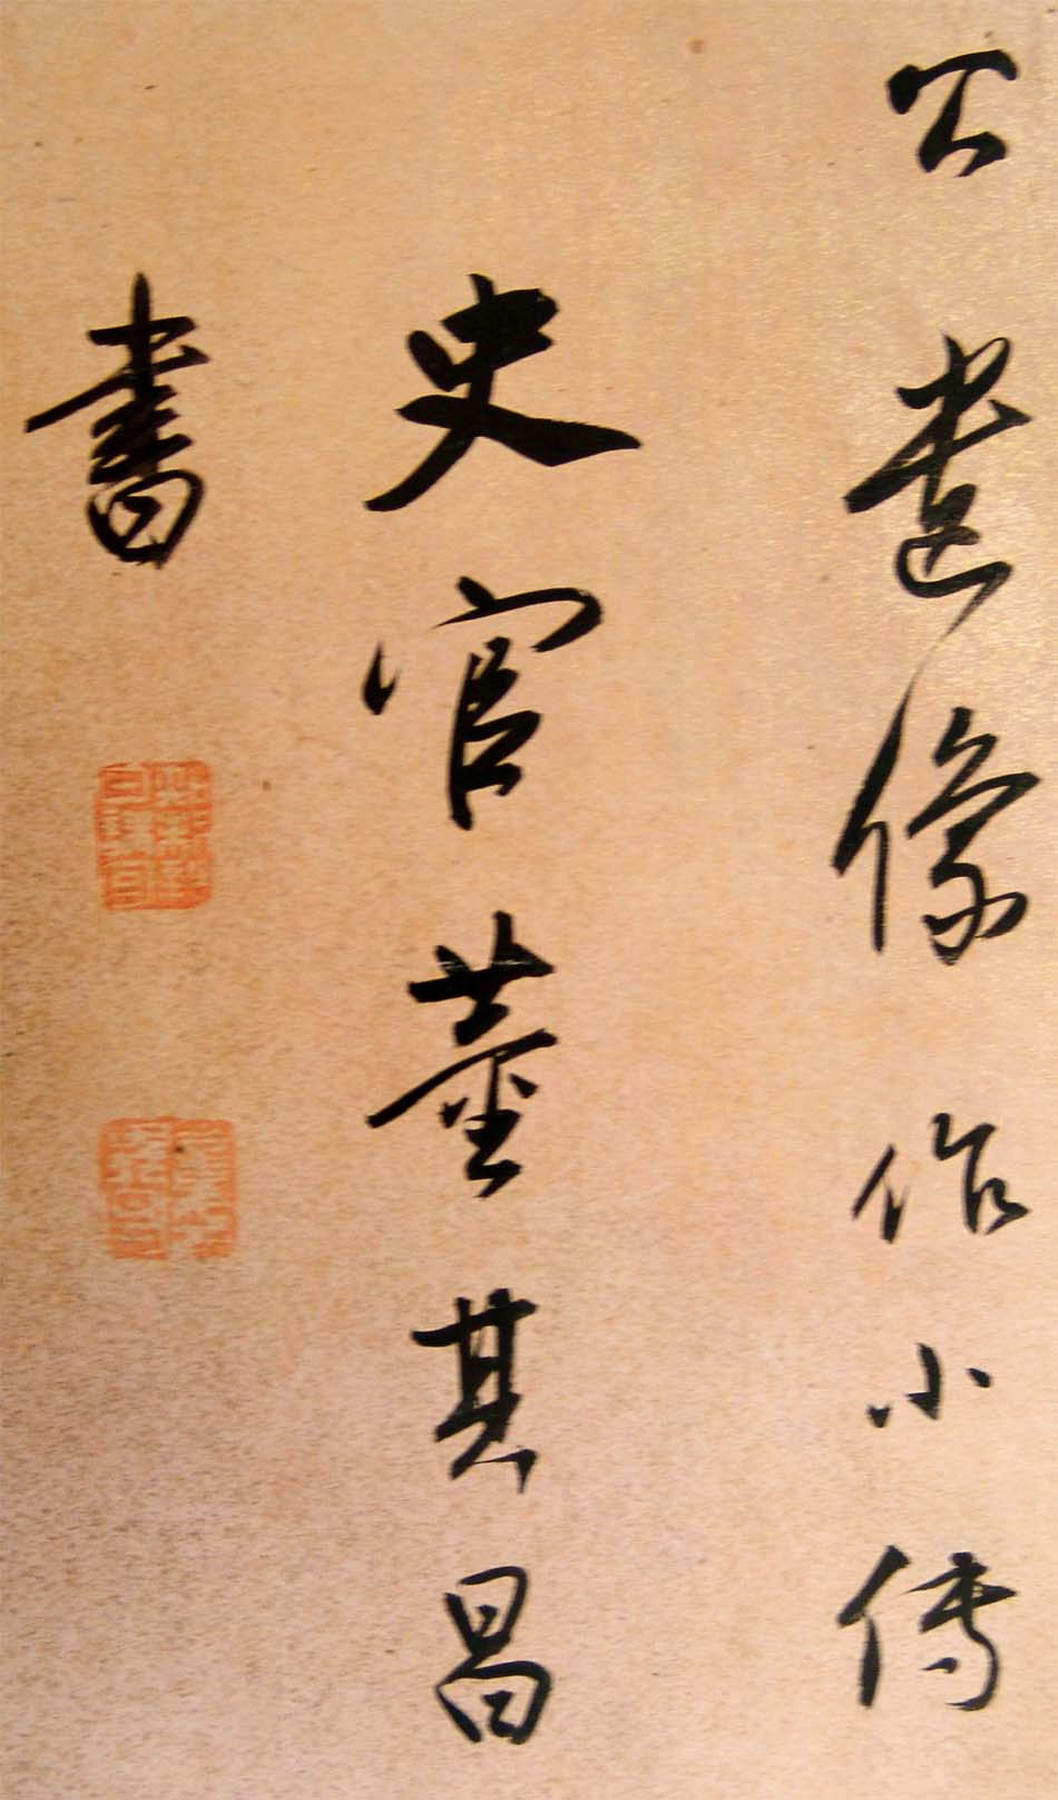 公遺像作小傳
史官董其昌
書